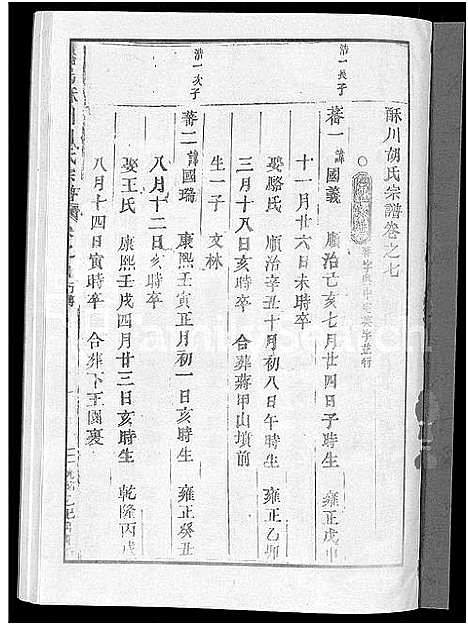 酥川胡氏宗譜卷之七
浩一長子
蕃一 諱國義 順治己亥七月廿四日子時生 雍正戊申
十一月廿六日未時卒
娶駱氏 順治辛丑十月初八日午時生 雍正乙卯
三月十八日亥時卒 合葬蔣甲山墳前
生一子 文林
浩一次子
蕃二 諱國瑞 康熙壬寅正月初一日亥時生 雍正癸丑
八月十二日亥時卒
娶王氏 康熙壬戌四月廿三日亥時生 乾隆丙戌
八月十四日寅時卒 合葬下王園裏